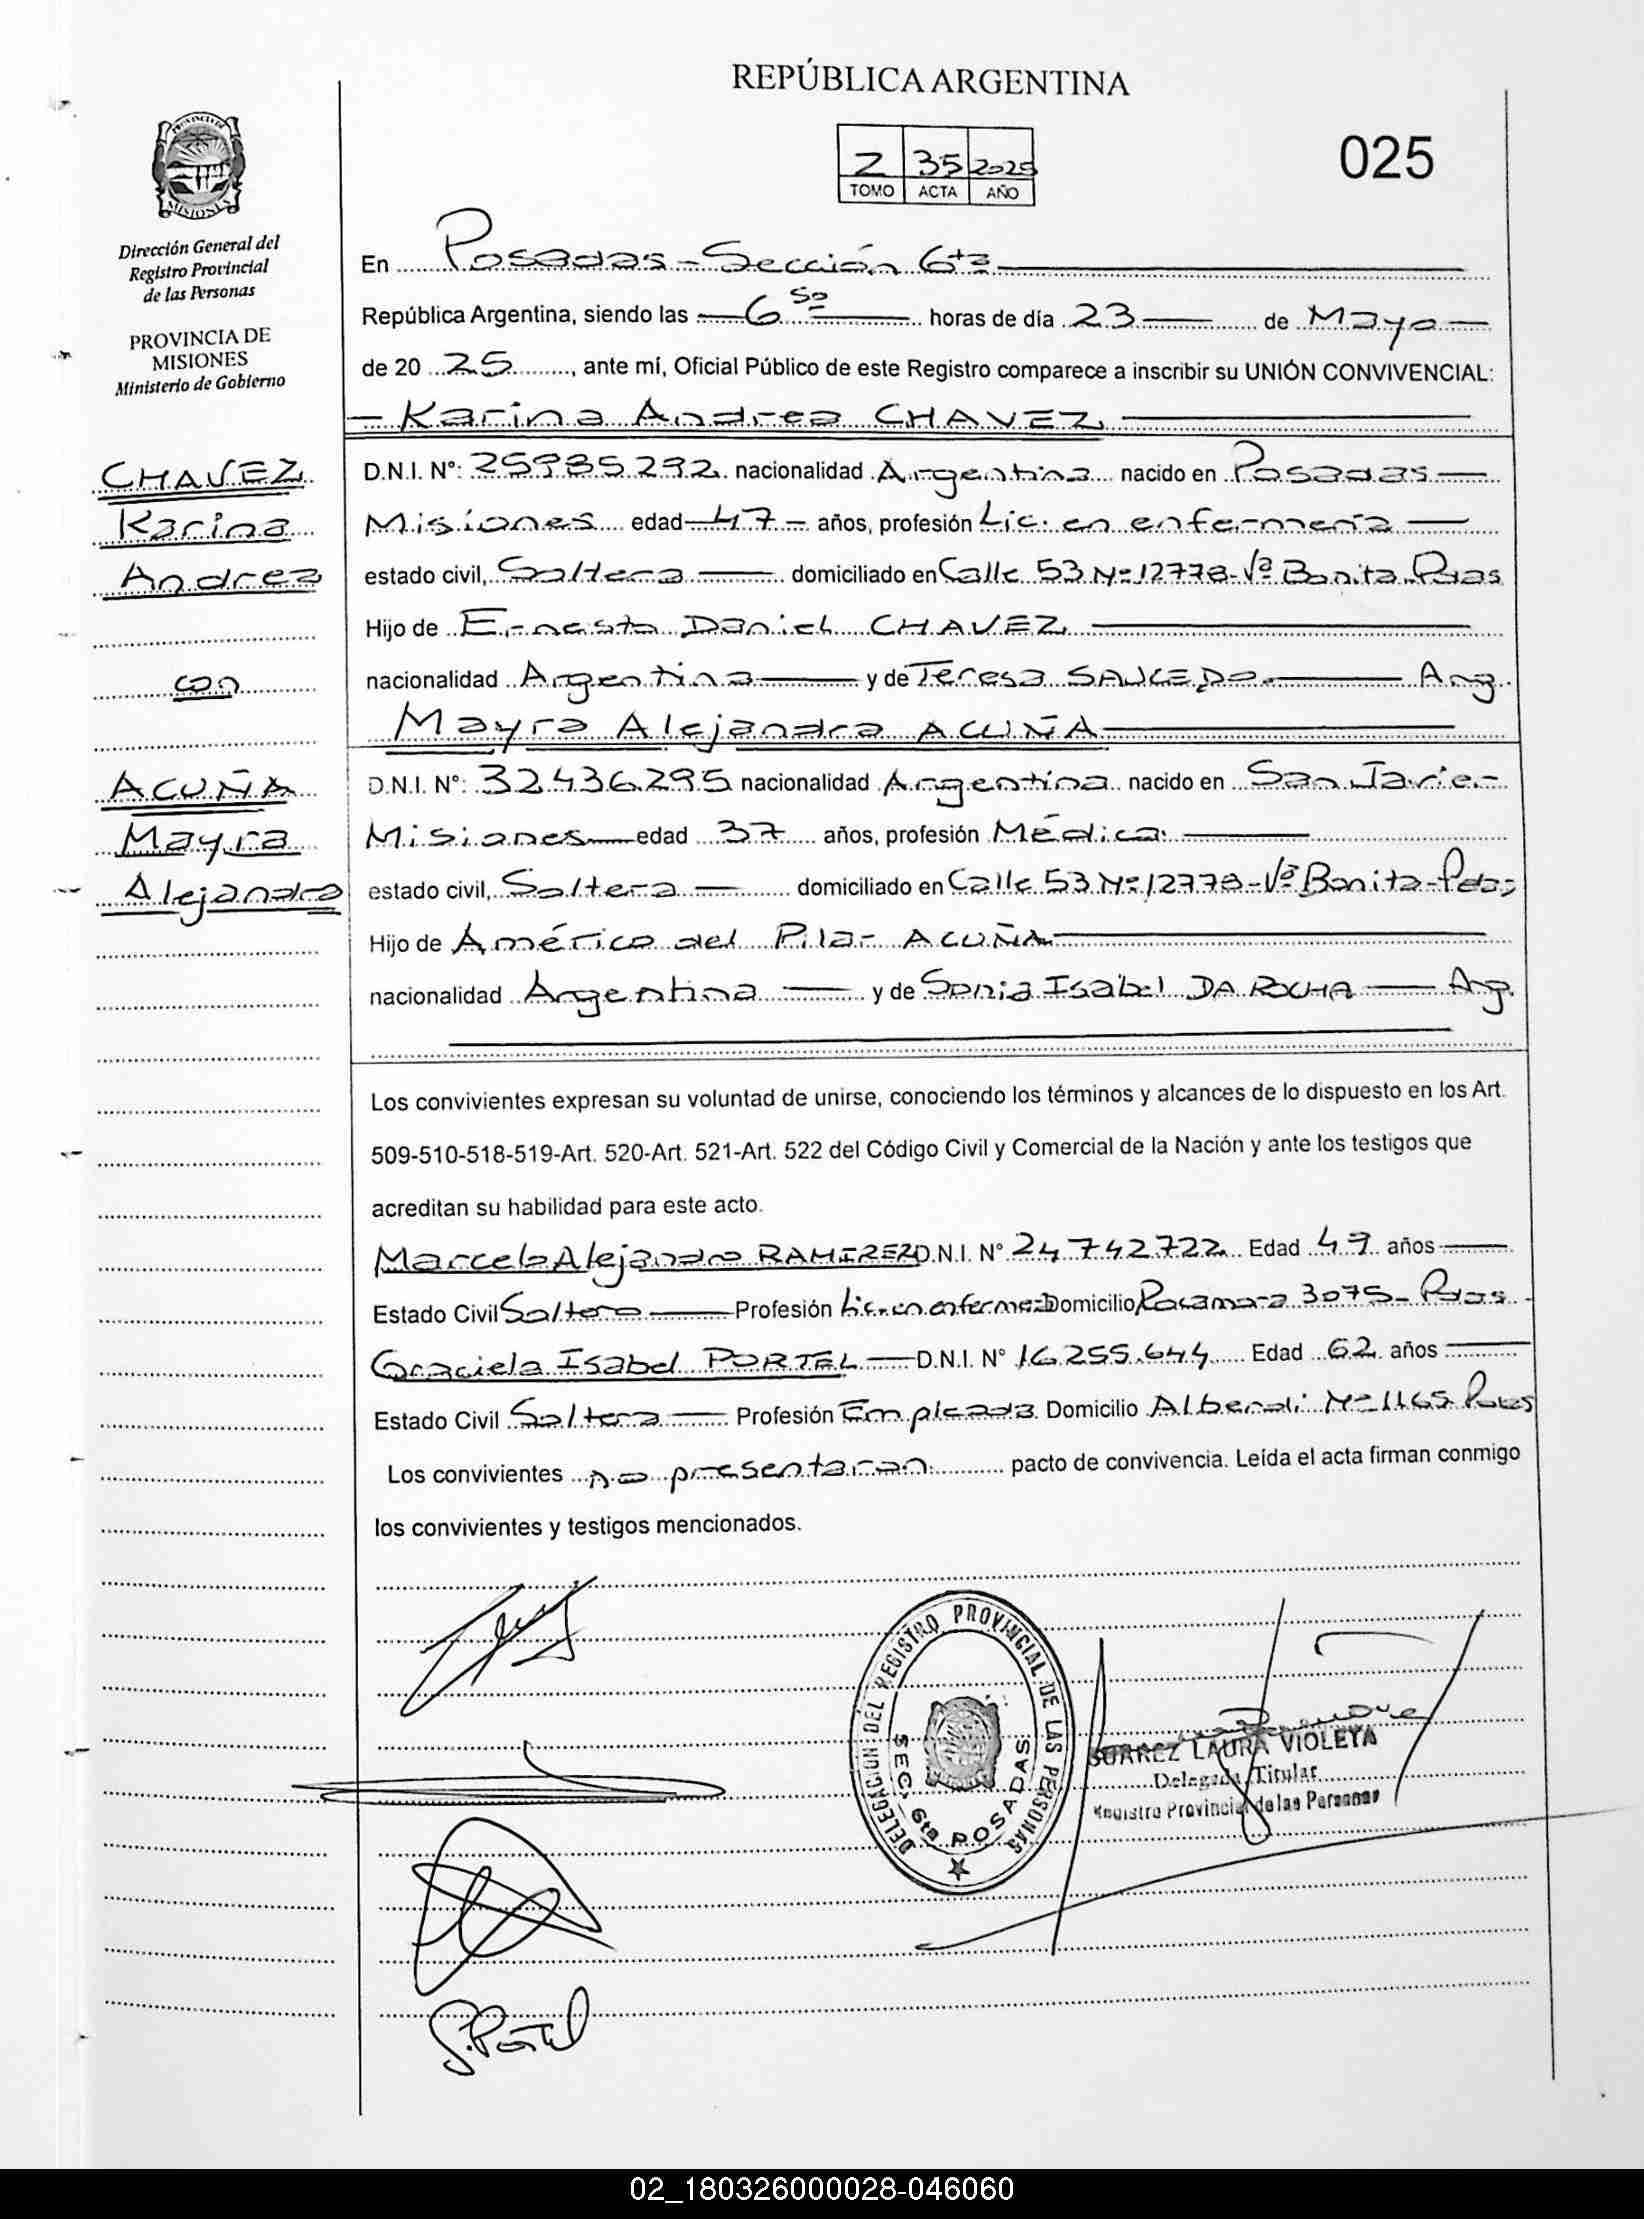 REPÚBLICA ARGENTINA
025
2 35 2025
TOMO ACTA AÑO
PROVINCIA DE
MISIONES
Dirección General del
Registro Provincial
de las Personas
PROVINCIA DE
MISIONES
Ministerio de Gobierno
En Posadas - Sección 6ta
República Argentina, siendo las 6 50 horas de día 23 de Mayo
de 20 25, ante mí, Oficial Público de este Registro comparece a inscribir su UNIÓN CONVIVENCIAL:
Karina Andrea CHAVEZ
CHAVEZ
Karina
Andrea
con
ACUÑA
Mayra
Alejandra
D.N.I. Nº: 25.985.292 nacionalidad Argentina nacido en Posadas
Misiones edad 47 años, profesión Lic. en enfermería
estado civil, Soltera domiciliado en Calle 53 Nº 12778-Vª Bonita Pdas
Hijo de Ernesto Daniel CHAVEZ
nacionalidad Argentina y de Teresa SAUCEDO Arg.
Mayra Alejandra ACUÑA
D.N.I. Nº: 32.436.295 nacionalidad Argentina nacido en San Javier
Misiones edad 37 años, profesión Médica
estado civil, Soltera domiciliado en Calle 53 Nº 12778-Vª Bonita-Pdas
Hijo de Américo del Pilar ACUÑA
nacionalidad Argentina y de Sonia Isabel DA ROCHA Arg.
Los convivientes expresan su voluntad de unirse, conociendo los términos y alcances de lo dispuesto en los Art.
509-510-518-519-Art. 520-Art. 521-Art. 522 del Código Civil y Comercial de la Nación y ante los testigos que
acreditan su habilidad para este acto.
Marcelo Alejandro RAMIREZ D.N.I. Nº 24.742.722 Edad 49 años
Estado Civil Soltero Profesión Lic. en enfermer Domicilio Rocamora 3075- Pdas
Graciela Isabel PORTEL D.N.I. Nº 16.255.644 Edad 62 años
Estado Civil Soltera Profesión Empleada Domicilio Alberdi Nº 1165 Pdas
Los convivientes no presentaron pacto de convivencia. Leída el acta firman conmigo
los convivientes y testigos mencionados.
DELEGACION DEL REGISTRO PROVINCIAL DE LAS PERSONAS
SEC. 6ta POSADAS
SUAREZ LAURA VIOLETA
Delegada Titular
Registro Provincial de las Personas
G. Portel
02_180326000028-046060